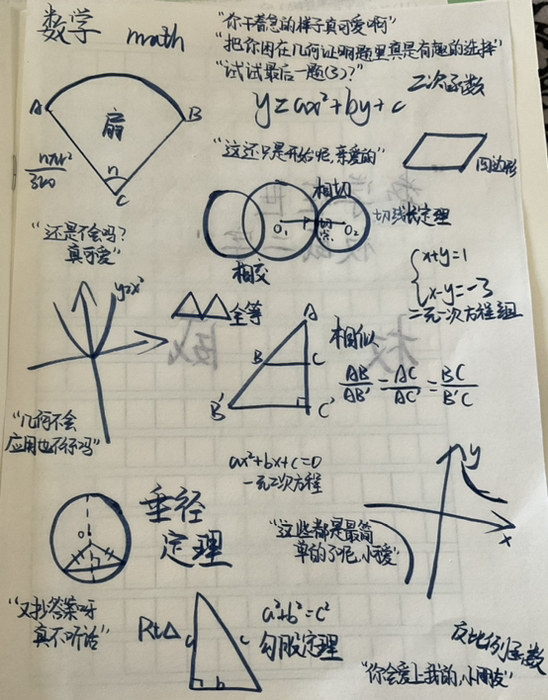 数学 math
"你干着急的样子真可爱啊"
"把你困在几何证明题里真是有趣的选择"
"试试最后一题(3)?"
二次函数
y=ax²+by+c
A
B
扇
n
C
nπr²/360
"这还只是开始呢,亲爱的"
四边形
相切
切线长定理
O₁
O₂
相交
"还是不会吗?
真可爱"
x+y=1
x-y=-3
二元一次方程组
y=x²
全等
A
B
C
B'
C'
相似
AB/AB'=AC/AC'=BC/B'C
"几何不会
应用也不行吗"
ax²+bx+c=0
一元二次方程
y
x
垂径
定理
o
"这些都是最简
单的了呢,小可爱"
"又抄答案呀
真不听话"
Rt△
a
b
c
a²+b²=c²
勾股定理
反比例函数
"你会爱上我的,小朋友"